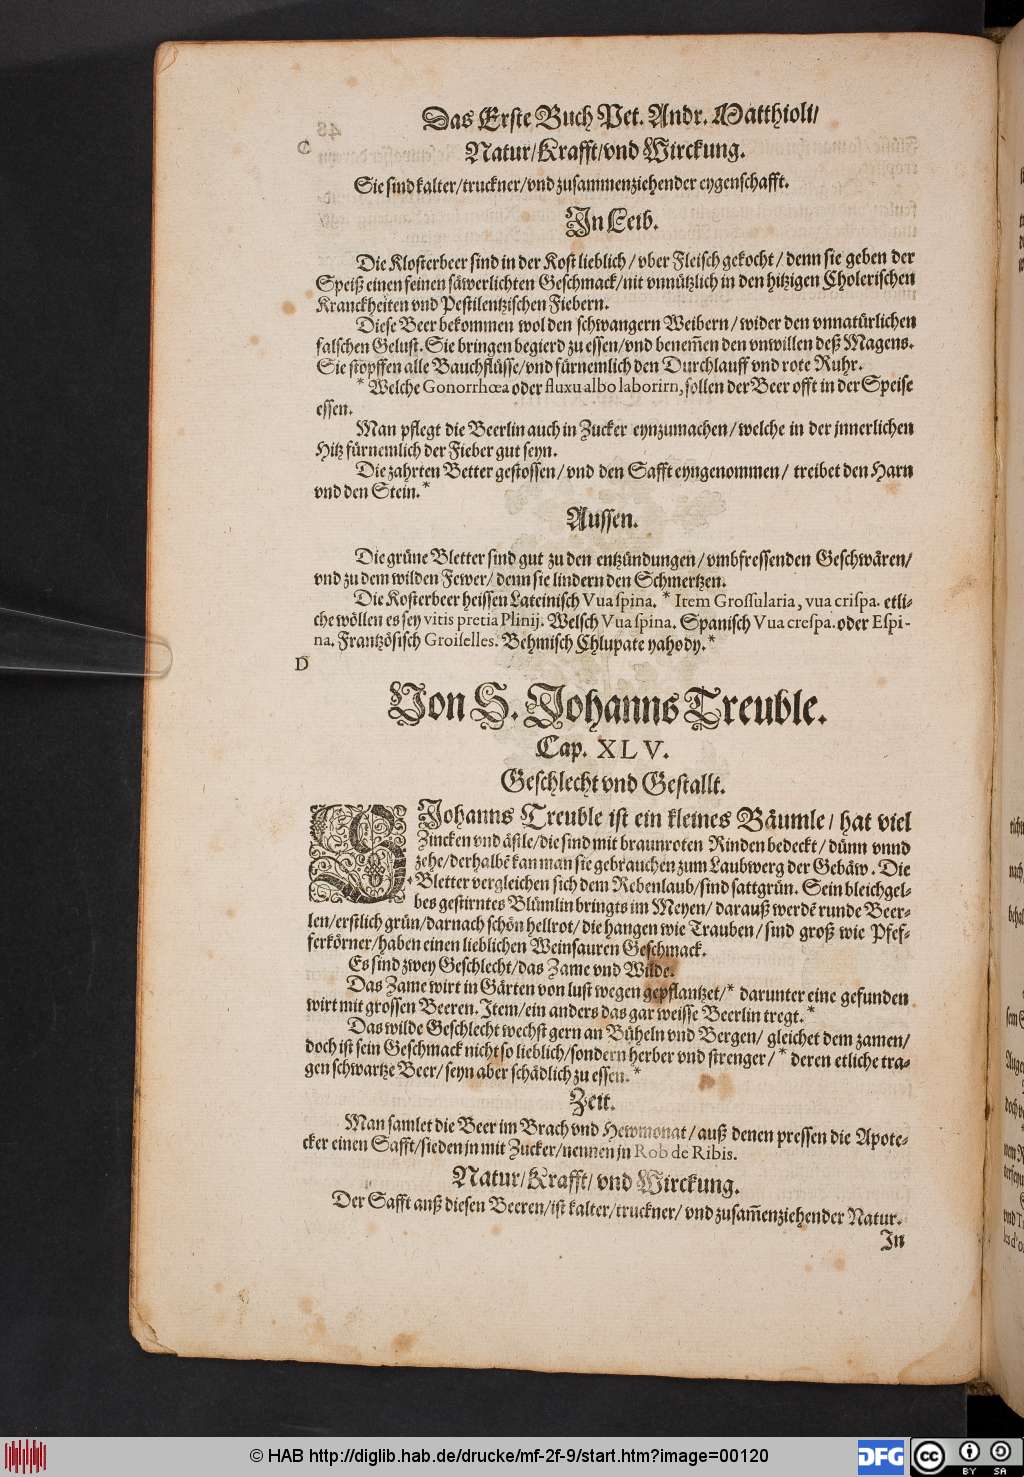 Das Erste Buch Pet. Andr. Matthioli/
C
Natur/Krafft/vnd Wirckung.
Sie sind kalter/truckner/vnd zusammenziehender eygenschafft.
In Leib.
Die Klosterbeer sind in der Kost lieblich / vber Fleisch gekocht / denn sie geben der
Speiß einen feinen säwerlichten Geschmack/nit vnnützlich in den hitzigen Cholerischen
Kranckheiten vnd Pestilentzischen Fiebern.
Diese Beer bekommen wol den schwangern Weibern / wider den vnnatürlichen
falschen Gelust. Sie bringen begierd zu essen/vnd benem̃en den vnwillen deß Magens.
Sie stopffen alle Bauchflüsse/vnd fürnemlich den Durchlauff vnd rote Ruhr.
* Welche Gonorrhœa oder fluxu albo laborirn, sollen der Beer offt in der Speise
essen.
Man pflegt die Beerlin auch in Zucker eynzumachen / welche in der jnnerlichen
Hitz fürnemlich der Fieber gut seyn.
Die zahrten Better gestossen / vnd den Safft eyngenommen / treibet den Harn
vnd den Stein. *
Aussen.
Die grüne Bletter sind gut zu den entzündungen / vmbfressenden Geschwären/
vnd zu dem wilden Fewer/ denn sie lindern den Schmertzen.
Die Kosterbeer heissen Lateinisch Vua spina. * Item Grossularia, vua crispa. etli-
che wöllen es sey vitis pretia Plinij. Welsch Vua spina. Spanisch Vua crespa. oder Espi-
na. Frantzösisch Groiselles. Behmisch Chlupate yahody. *
D
Von S. Johanns Treuble.
Cap. XLV.
Geschlecht vnd Gestallt.
S Johanns Treuble ist ein kleines Bäumle / hat viel
Zincken vnd ästle/die sind mit braunroten Rinden bedeckt / dünn vnnd
zehe/derhalbẽ kan man sie gebrauchen zum Laubwerg der Gebäw. Die
Bletter vergleichen sich dem Rebenlaub/sind sattgrün. Sein bleichgel-
bes gestirntes Blümlin bringts im Meyen/ darauß werdẽ runde Beer-
len/erstlich grün/darnach schön hellrot/ die hangen wie Trauben/ sind groß wie Pfef-
ferkörner/haben einen lieblichen Weinsauren Geschmack.
Es sind zwey Geschlecht/das Zame vnd Wilde.
Das Zame wirt in Gärten von lust wegen gepflantzet/* darunter eine gefunden
wirt mit grossen Beeren. Item/ein anders das gar weisse Beerlin tregt. *
Das wilde Geschlecht wechst gern an Büheln vnd Bergen/ gleichet dem zamen/
doch ist sein Geschmack nicht so lieblich/sondern herber vnd strenger/ * deren etliche tra-
gen schwartze Beer/ seyn aber schädlich zu essen. *
Zeit.
Man samlet die Beer im Brach vnd Hewmonat / auß denen pressen die Apote-
cker einen Safft/sieden jn mit Zucker/nennen jn Rob de Ribis.
Natur/Krafft/ vnd Wirckung.
Der Safft auß diesen Beeren/ist kalter/truckner/ vnd zusam̃enziehender Natur.
In
© HAB http://diglib.hab.de/drucke/mf-2f-9/start.htm?image=00120
DFG
cc
BY SA